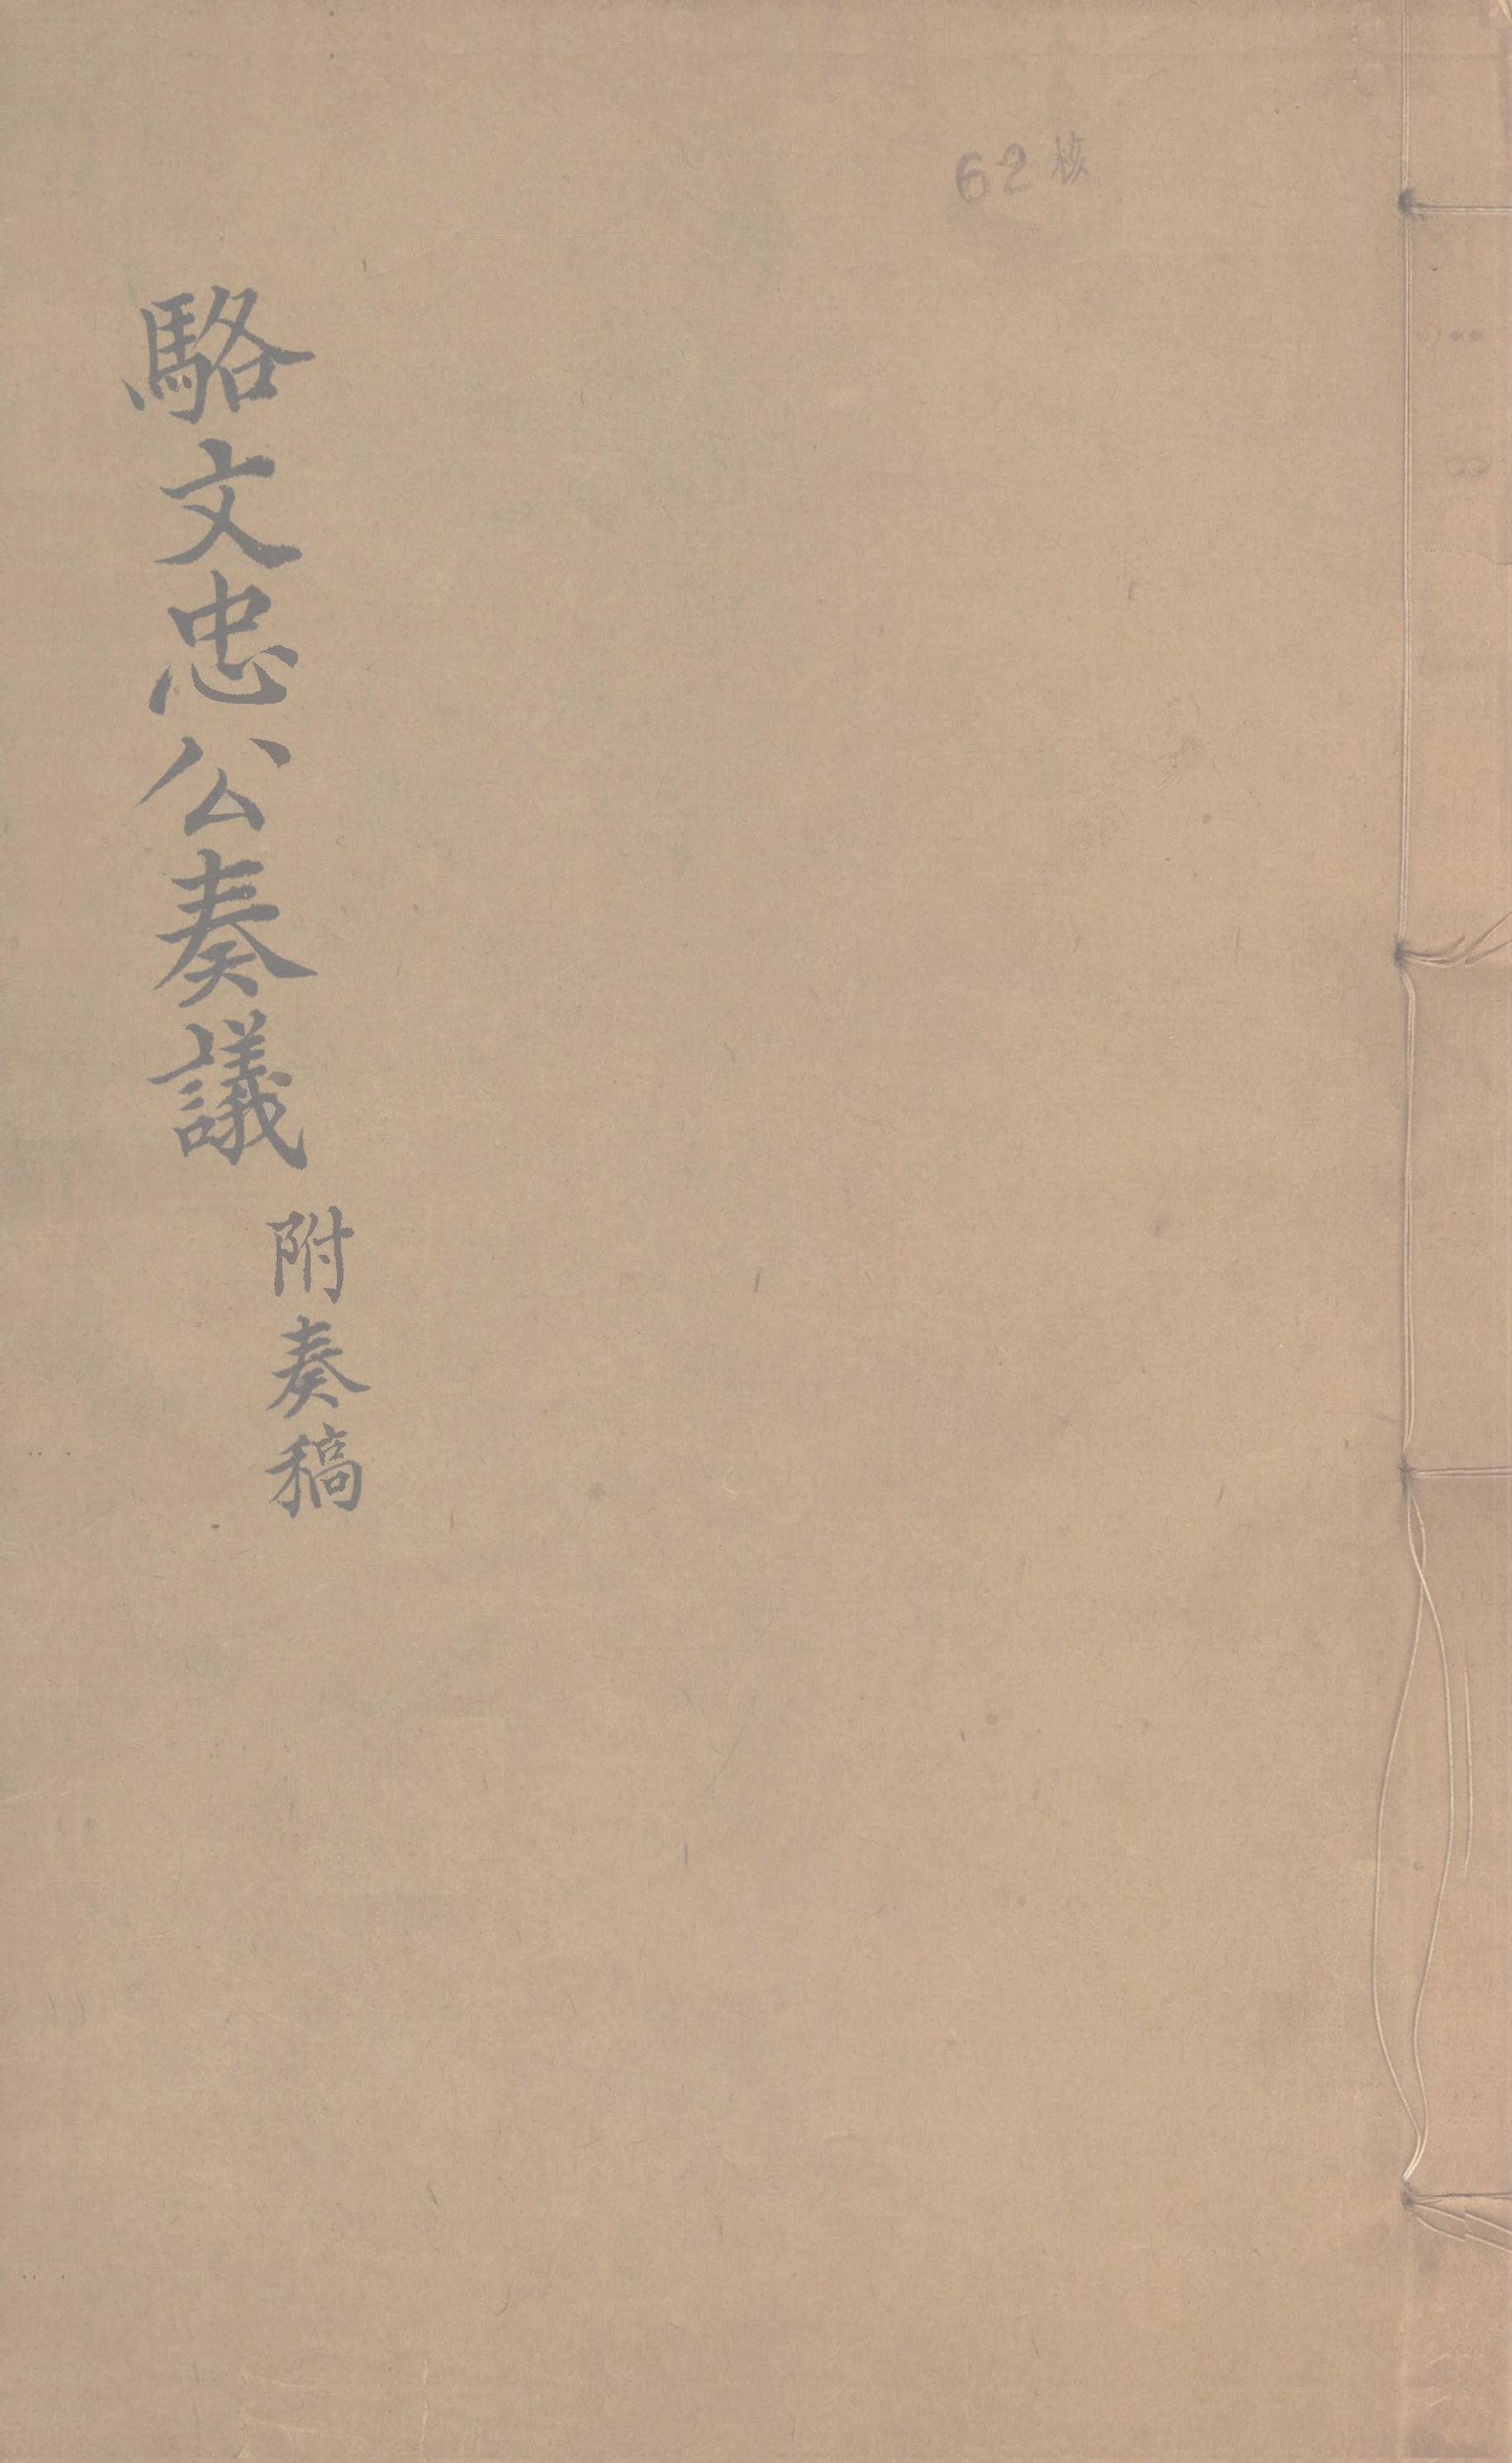 62核
駱文忠公奏議
附奏稿